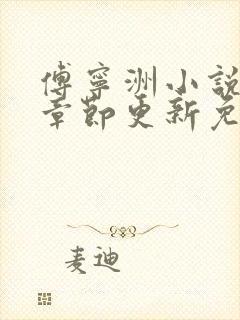 傅寧洲小說
章節更新免
麦迪